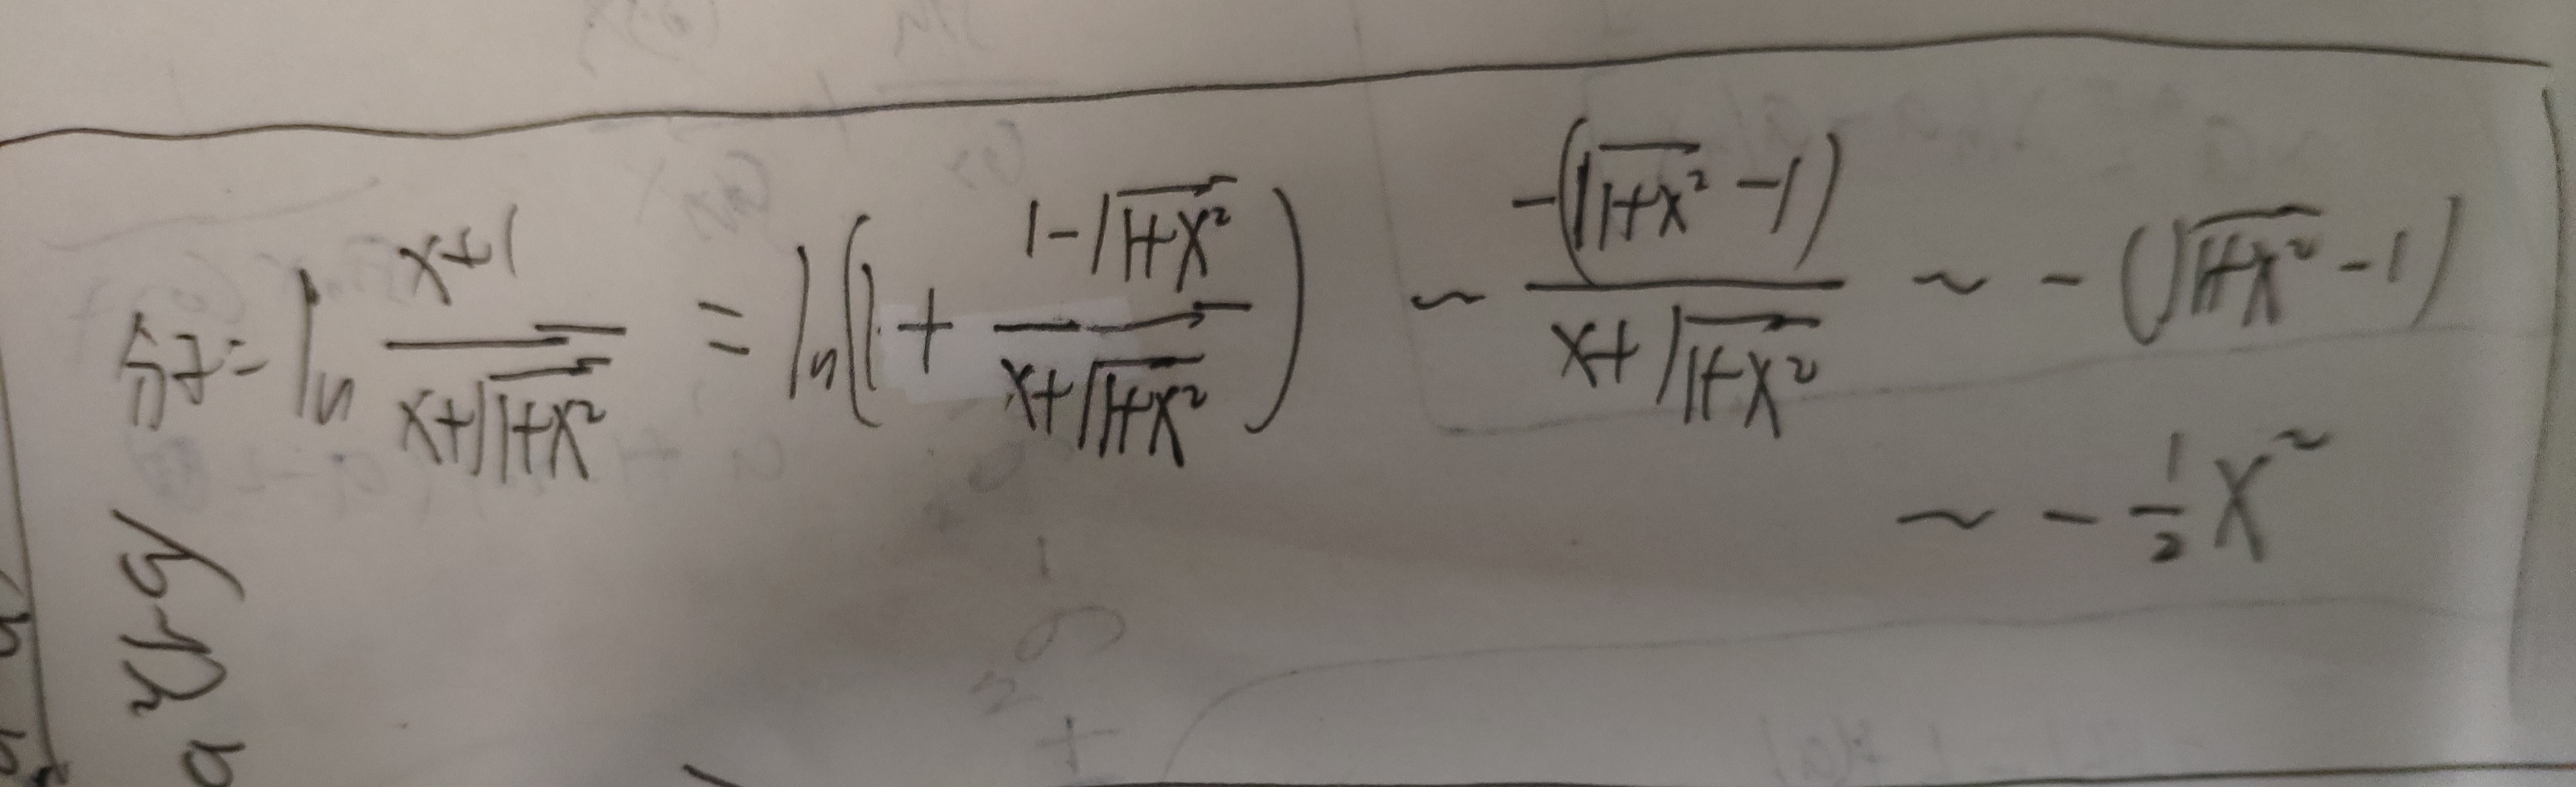 分子 = ln (x+1)/(x+√(1+x²)) = ln(1 + (1-√(1+x²))/(x+√(1+x²))) ~ -(√(1+x²) -1)/(x+√(1+x²)) ~ -(√(1+x²) -1)
~ - 1/2 x²